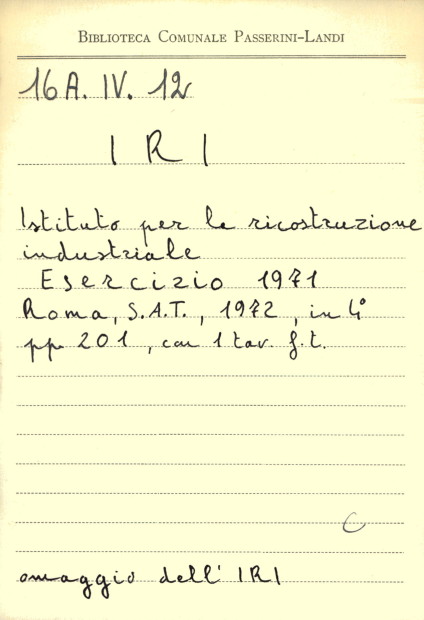 BIBLIOTECA COMUNALE PASSERINI-LANDI
16 A. IV. 12
IRI
Istituto per la ricostruzione
industriale
Esercizio 1971
Roma, S.A.T., 1972, in 4°
pp 201, con 1 tav. f.t.
C
omaggio dell' IRI